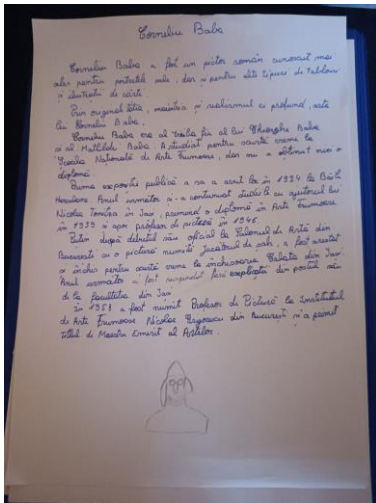 Corneliu Baba
Corneliu Baba a fost un pictor român cunoscut mai
ales pentru portretele sale, dar și pentru alte tipuri de tablouri
și ilustrații de cărți.
Prin originalitatea, măiestria și realismul ei profund, arta
lui Corneliu Baba.
Corneliu Baba era al treilea fiu al lui Gheorghe Baba
și al Mathildei Baba. A studiat pentru scurtă vreme la
Școala Națională de Arte Frumoase, dar nu a obținut nici o
diplomă.
Prima expoziție publică a sa a avut loc în 1934 la Băile
Herculane. Anul următor și-a continuat studiile cu ajutorul lui
Nicolae Tonitza în Iași, primind o diplomă în Arte Frumoase
în 1939 și apoi profesor de pictură în 1946.
Puțin după debutul său oficial la Salonul de Artă din
București cu o pictură numită Jucătorul de șah, a fost arestat
și închis pentru scurtă vreme la închisoarea Galata din Iași.
Anul următor a fost suspendat fără explicații din postul său
de la facultatea din Iași.
În 1958 a fost numit Profesor de Pictură la Institutul
de Arte Frumoase Nicolae Grigorescu din București și a primit
titlul de Maestru Emerit al Artelor.